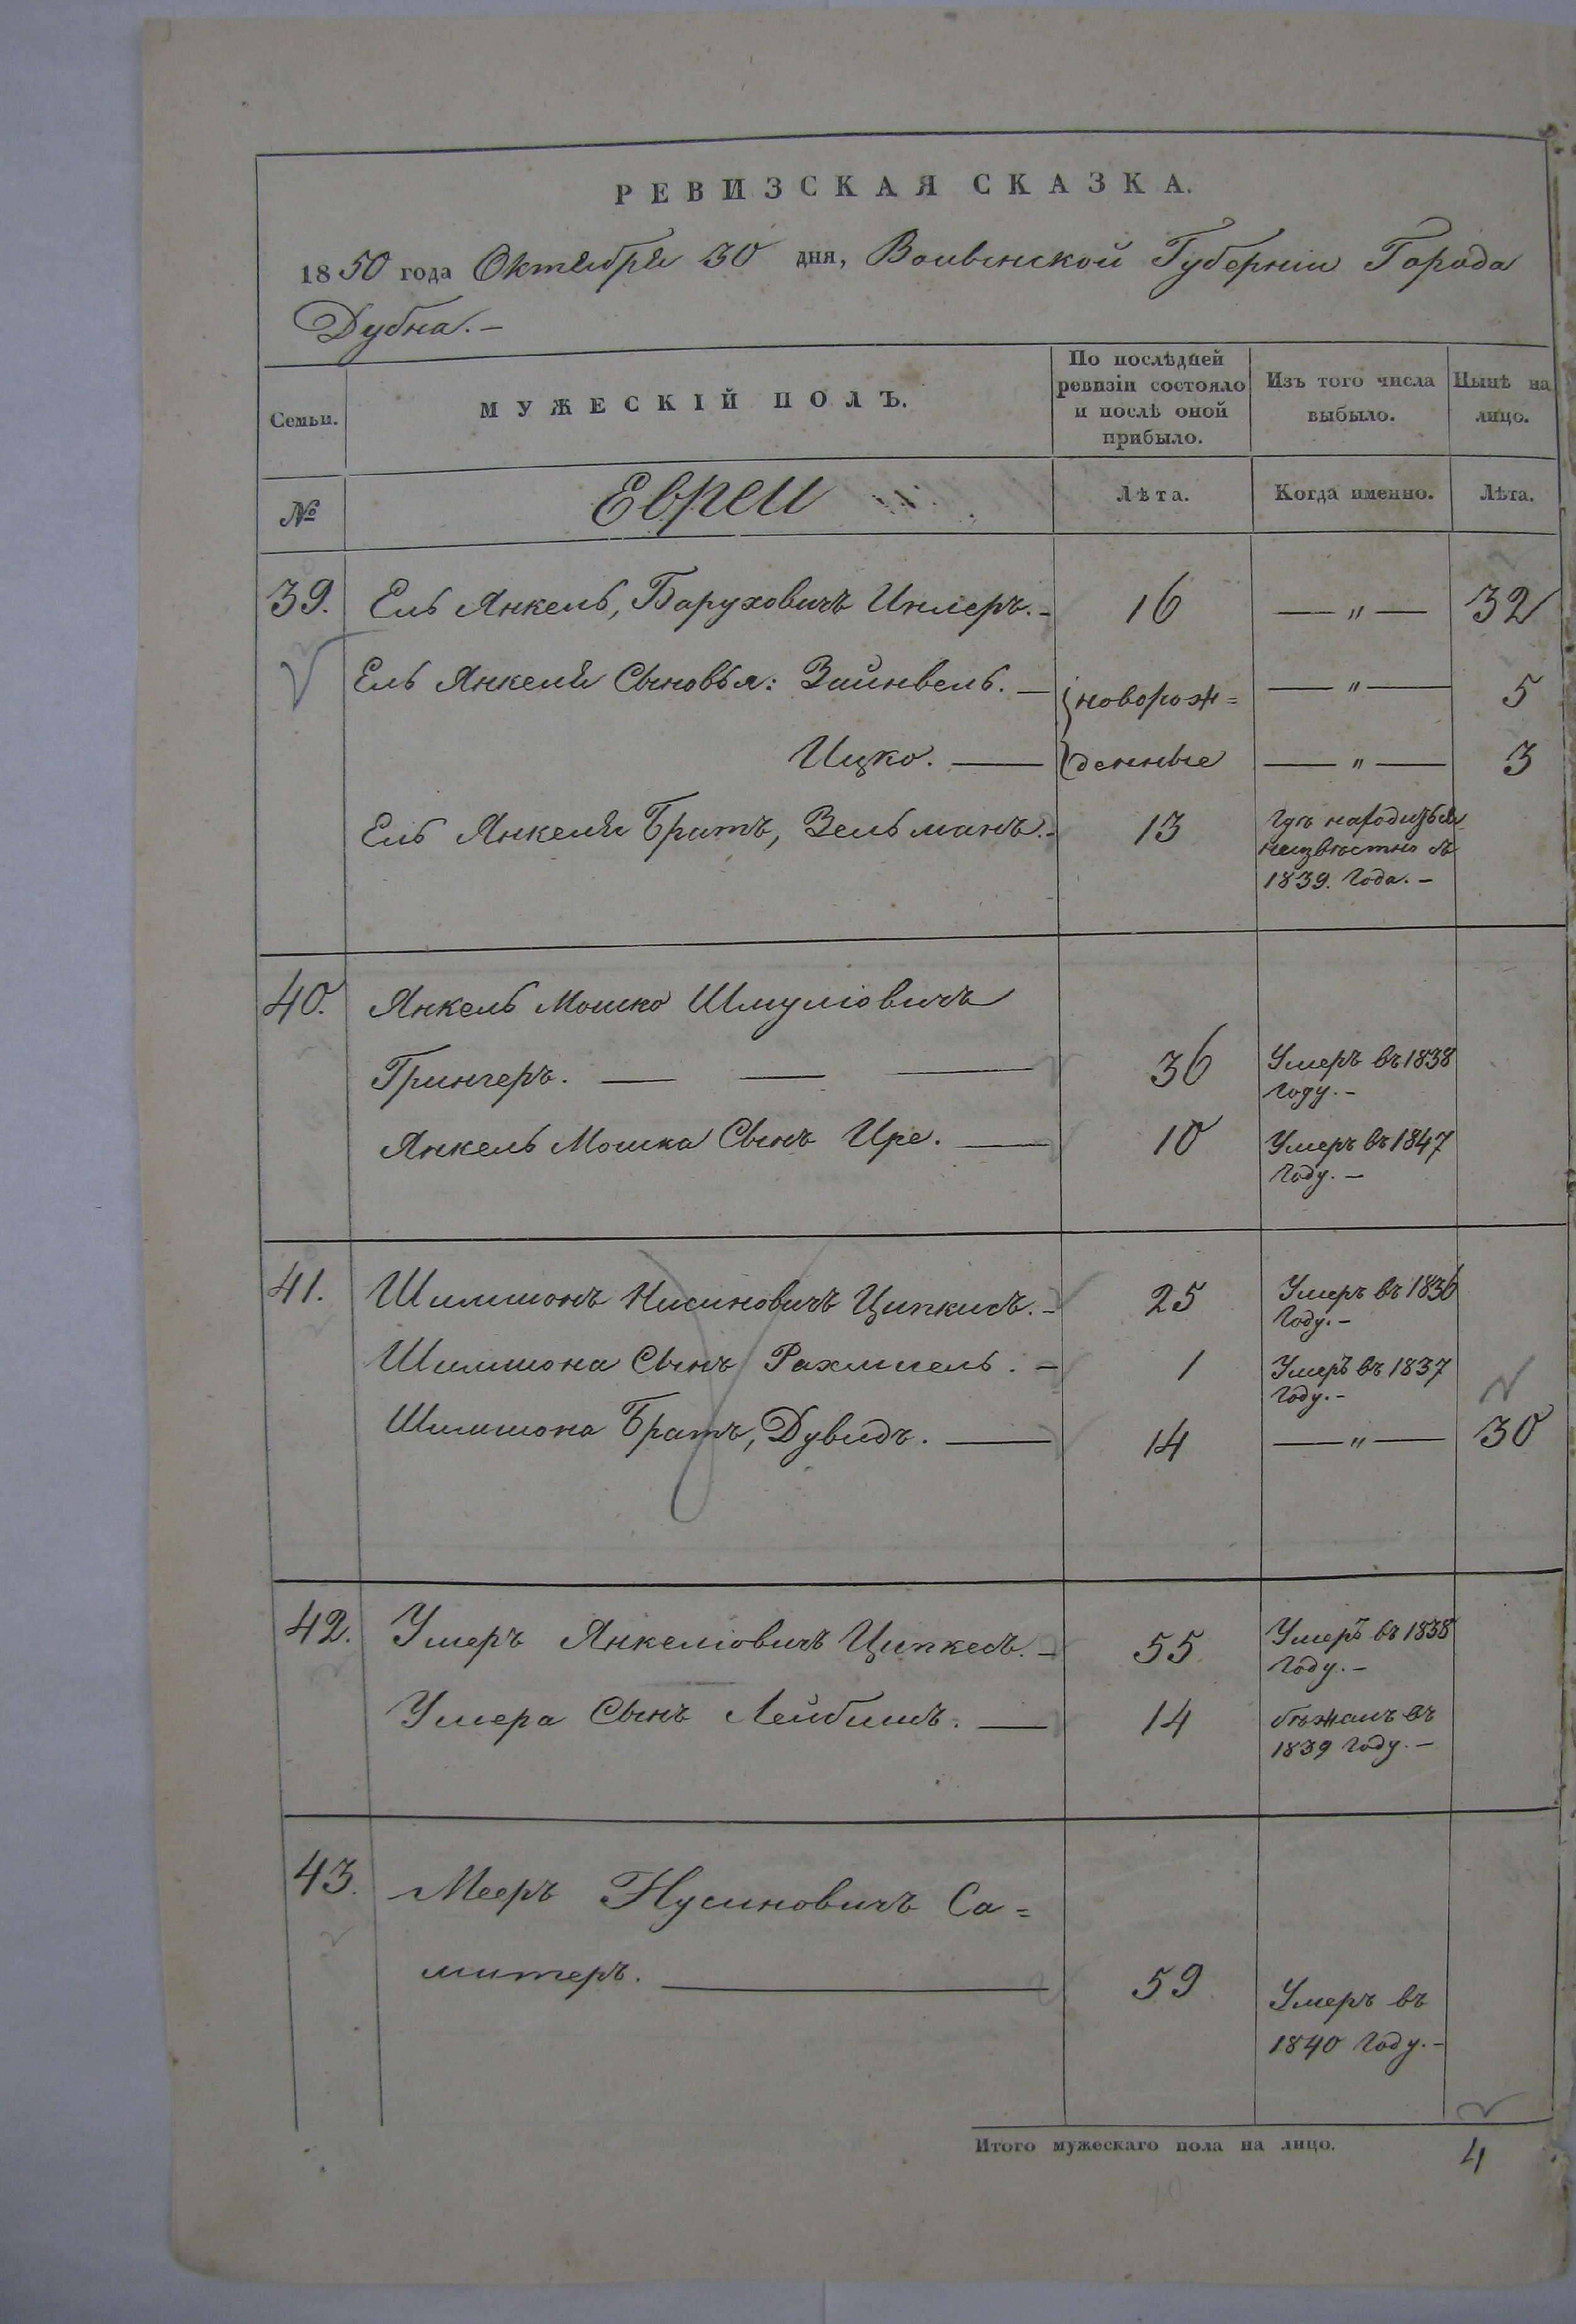 РЕВИЗСКАЯ СКАЗКА.
1850 года Октября 30 дня, Волынской Губерніи Города
Дубна.–
Семьи.
МУЖЕСКІЙ ПОЛЪ.
По послѣдней ревизіи состояло и послѣ оной прибыло.
Изъ того числа выбыло.
Нынѣ на лицо.
№
Евреи
Лѣта.
Когда именно.
Лѣта.
39. Ель Янкель, Баруховичъ Инлеръ.– 16 — " — 32
Ель Янкеля Сыновья: Зайнвель. — новорож= — " — 5
Ицко. — денные — " — 3
Ель Янкеля Братъ, Зельманъ.– 13 Гдѣ находиться
неизвѣстно съ
1839. Года.–
40. Янкель Мошко Шмуліовичъ
Грингеръ. — — — 36 Умеръ въ 1838
Году.–
Янкель Мошка Сынъ Ире. — 10 Умеръ въ 1847
Году.–
41. Шимшонъ Нисиновичъ Ципкисъ.– 25 Умеръ въ 1836
Году.–
Шимшона Сынъ Рахмиель.– 1 Умеръ въ 1837
Году.–
Шимшона Братъ, Дувидъ. — 14 — " — 30
42. Умеръ Янкеліовичъ Ципкесъ.– 55 Умеръ въ 1838
Году.–
Умера Сынъ Лейбишъ. — 14 бѣжалъ въ
1839 Году.–
43. Мееръ Нусиновичъ Са=
митеръ. — 59 Умеръ въ
1840 Году.–
Итого мужескаго пола на лицо. 4